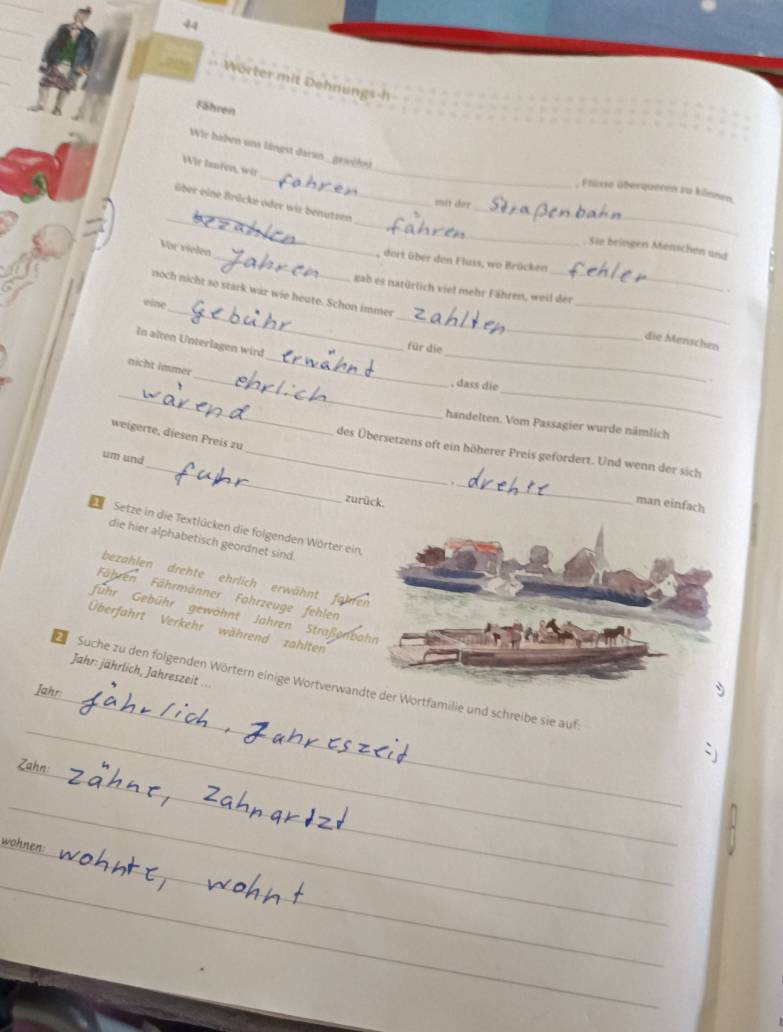 44
Wörter mit Dehnungs-h
Fähren
Wir haben uns längst daran gewöhnt , Flüsse überqueren zu können.
Wir laufen, wir fahren mit der Straßenbahn
über eine Brücke oder wir benutzen fähren . Sie bringen Menschen und
bezahlen , dort über den Fluss, wo Brücken fehler .
Vor vielen Jahren gab es natürlich viel mehr Fähren, weil der
noch nicht so stark war wie heute. Schon immer zahlten die Menschen
eine gebühr für die .
In alten Unterlagen wird erwähnt , dass die
nicht immer ehrlich handelten. Vom Passagier wurde nämlich
wärend des Übersetzens oft ein höherer Preis gefordert. Und wenn der sich
weigerte, diesen Preis zu , drehte man einfach
um und fuhr zurück.
1 Setze in die Textlücken die folgenden Wörter ein,
die hier alphabetisch geordnet sind.
bezahlen drehte ehrlich erwähnt fahren
Fähren Fährmänner Fahrzeuge fehlen
fuhr Gebühr gewöhnt Jahren Straßenbahn
Überfahrt Verkehr während zahlten
2 Suche zu den folgenden Wörtern einige Wortverwandte der Wortfamilie und schreibe sie auf:
Jahr: jährlich, Jahreszeit ...
Jahr: jährlich, Jahreszeit
Zahn: zähne, Zahnartzt
wohnen: wohnte, wohnt